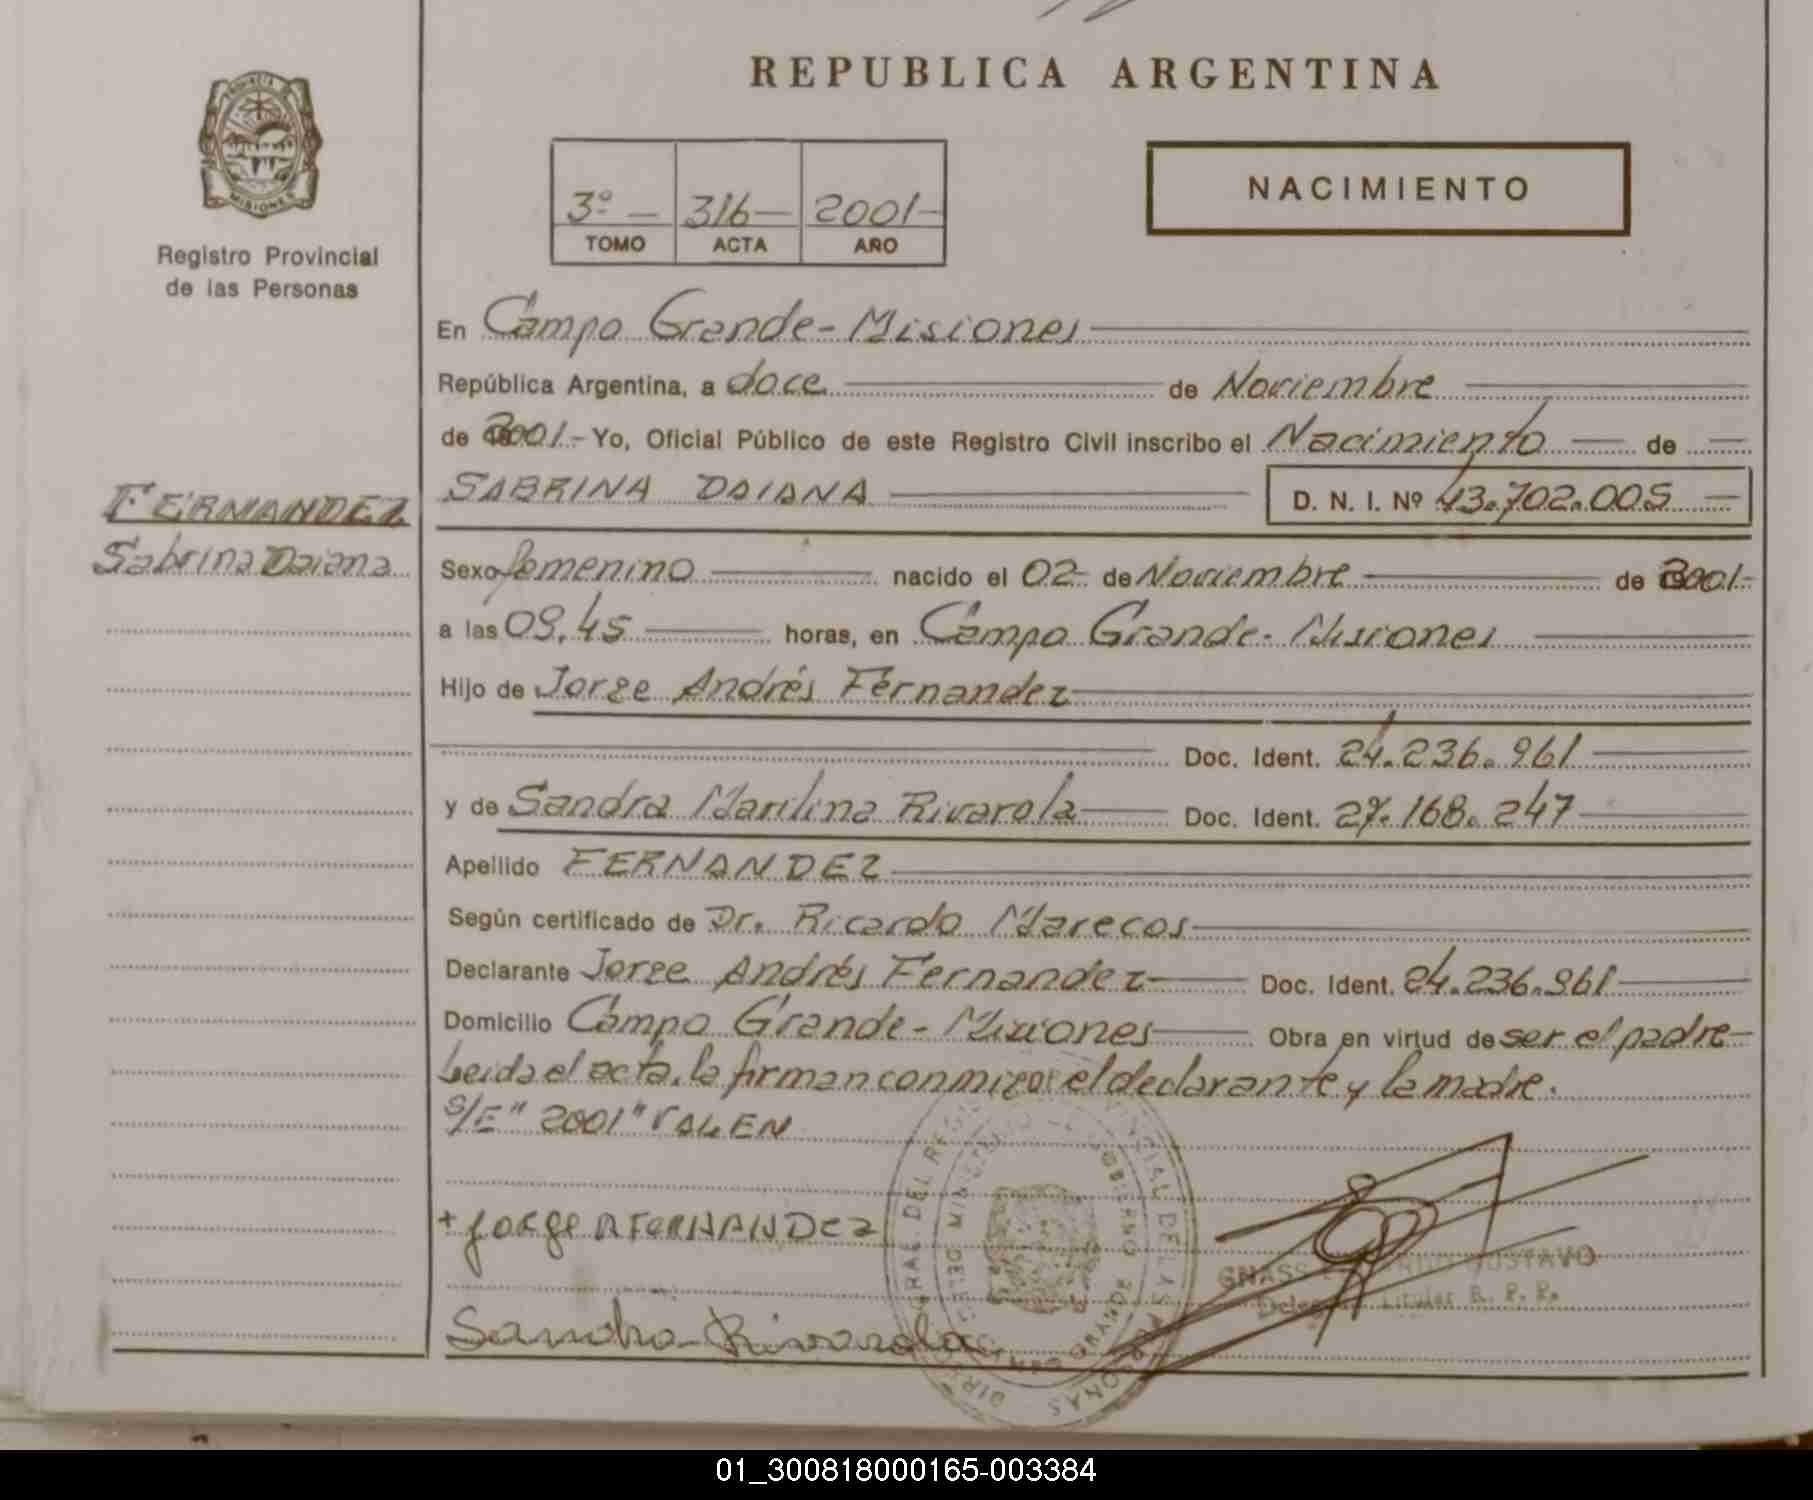 REPUBLICA ARGENTINA
PROVINCIA DE
MISIONES
Registro Provincial
de las Personas
3º — 316— 2001-
TOMO ACTA AÑO
NACIMIENTO
En Campo Grande-Misiones
República Argentina, a doce de Noviembre
de 2001.- Yo, Oficial Público de este Registro Civil inscribo el Nacimiento — de —
FERNANDEZ
Sabrina Daiana
SABRINA DAIANA D. N. I. Nº 43.702.005 —
Sexo femenino nacido el 02 de Noviembre de 2001-
a las 09,45 horas, en Campo Grande- Misiones
Hijo de Jorge Andrés Fernandez
Doc. Ident. 24.236.961
y de Sandra Marilina Rivarola Doc. Ident. 27.168.247
Apellido FERNANDEZ
Según certificado de Dr. Ricardo Marecos
Declarante Jorge Andrés Fernandez Doc. Ident. 24.236.961
Domicilio Campo Grande- Misiones Obra en virtud de ser el padre-
Leida el acta, la firman conmigo el declarante y la madre.
S/E" 2001" VALEN
+ Jorge A FERNANDEZ
GNASS GUSTAVO
Titular R. P. P.
Sandra Rivarola
01_300818000165-003384